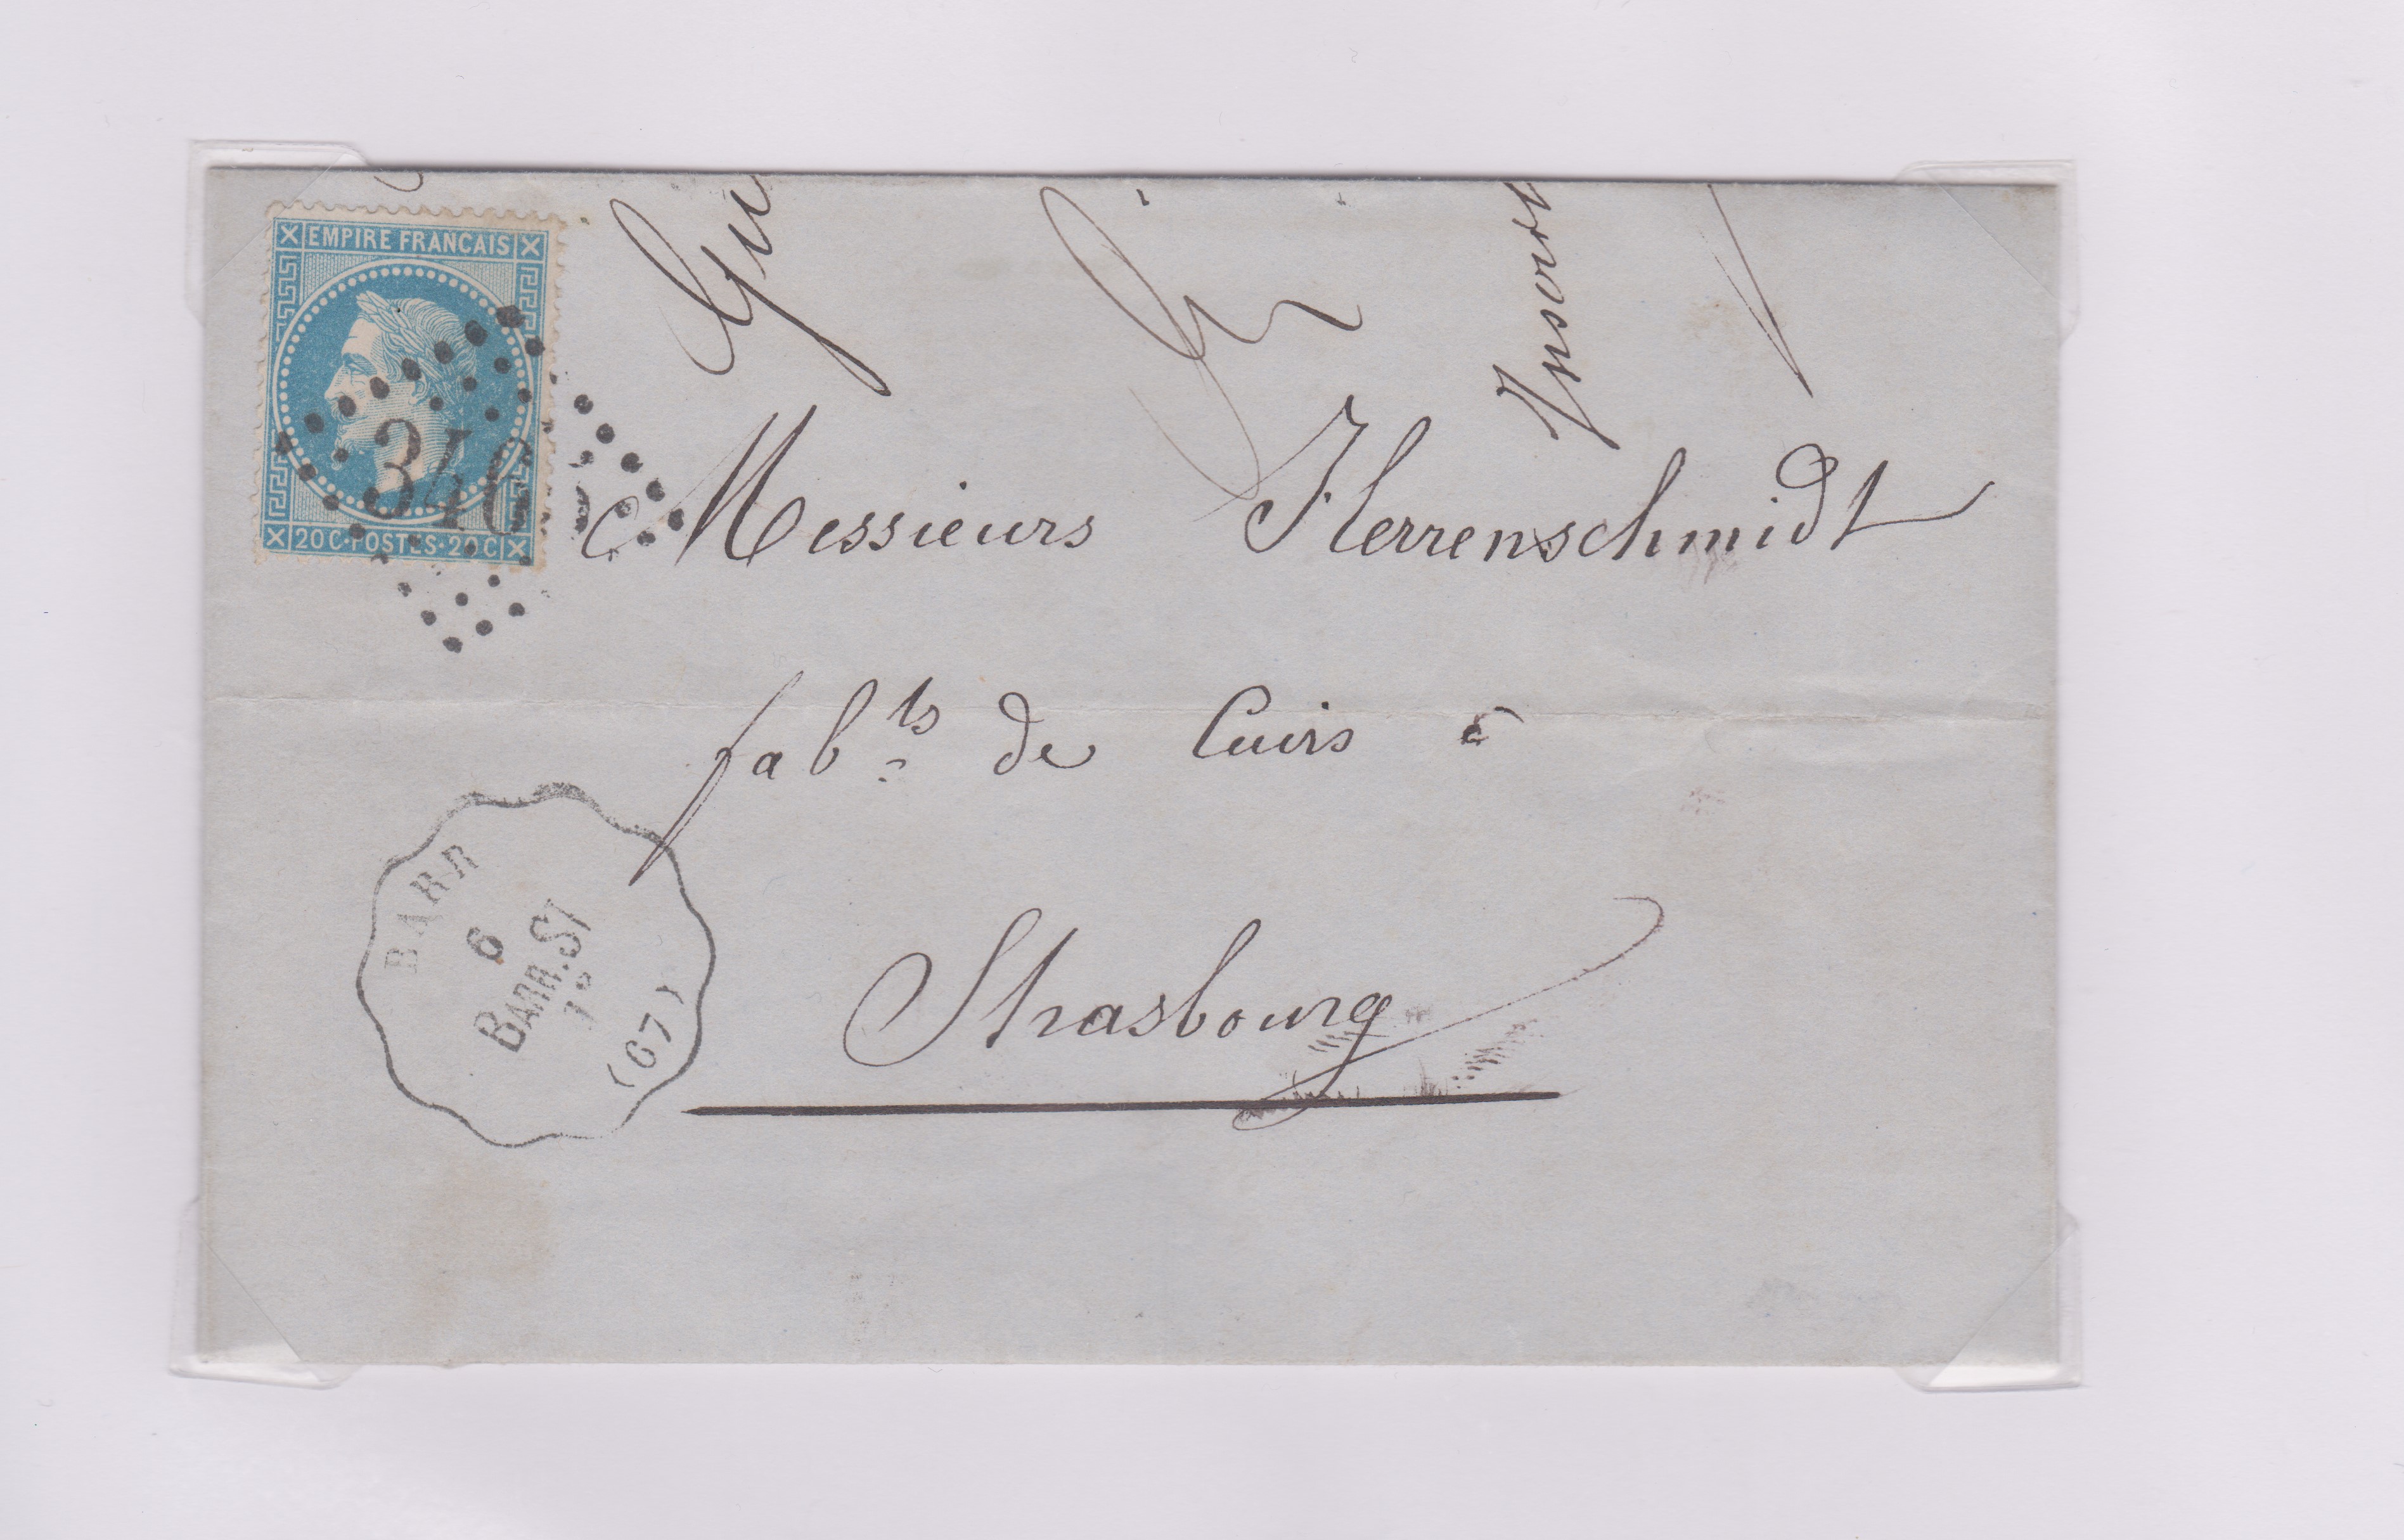 EMPIRE FRANCAIS
20C·POSTES·20C
346
Messieurs Herrenschmidt
fabts de Cuirs à
Strasbourg
BARR
6
BARR.ST
1º
(67)